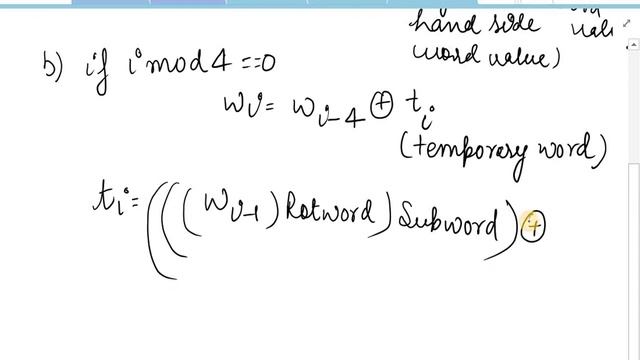 hand side
word value)
b) if i mod 4 == 0
wi = wi-4 ⊕ ti
(temporary word)
ti = (((wi-1) Rotword) Subword) ⊕